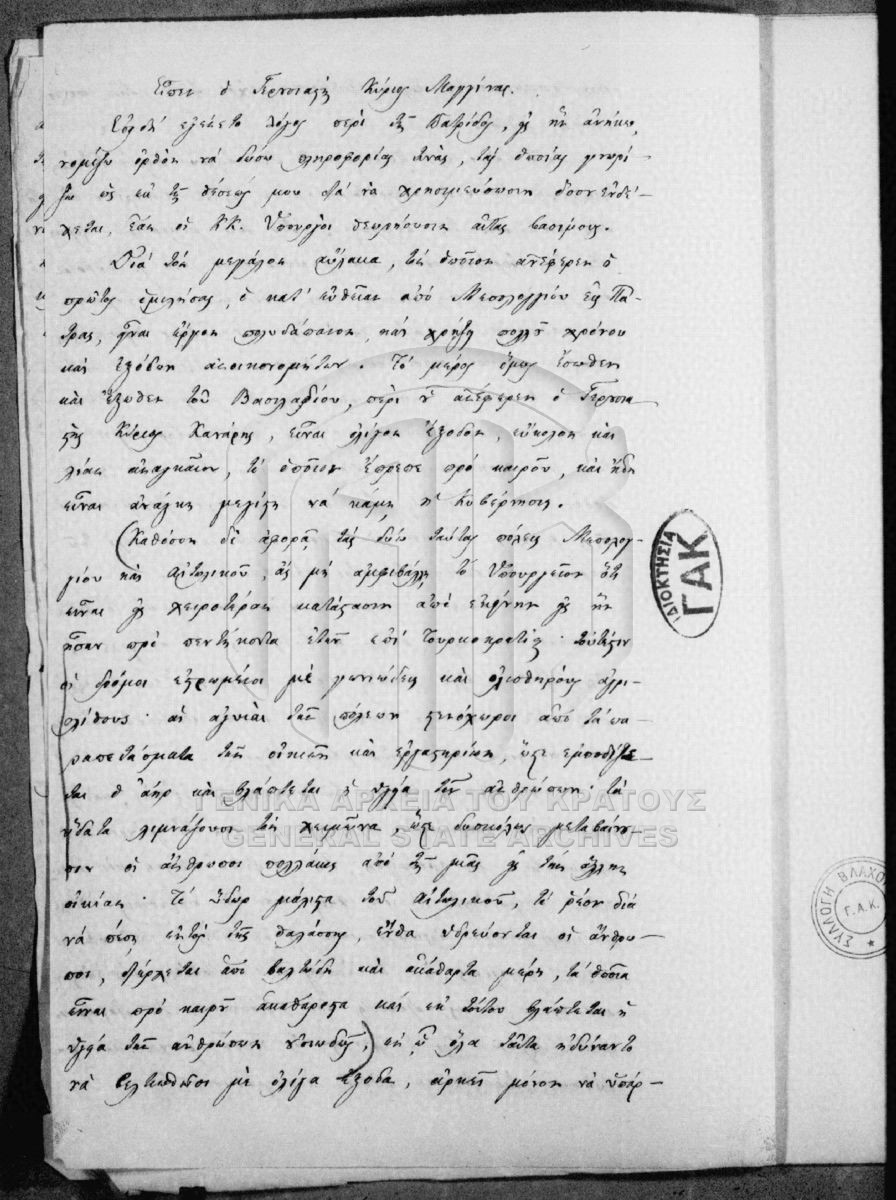 Εἶπεν ὁ Γερουσιαστὴς Κύριος Μαγγίνας.
Ἐπειδὴ ἐγένετο λόγος περὶ τῆς Πατρίδος, εἰς ἣν ἀνήκω,
νομίζω ὀρθὸν νὰ δώσω πληροφορίας τινὰς, τὰς ὁποίας γνωρί-
ζω ὡς ἐκ τῆς θέσεώς μου διὰ νὰ χρησιμεύσωσιν ὅσον ἐνδέ-
χεται, ἐὰν οἱ ΚΚ. Ὑπουργοὶ θεωρήσωσιν αὐτὰς βασίμους.
Διὰ τὸν μεγάλον αὔλακα, τὸν ὁποῖον ἀνέφερεν ὁ
πρῶτος ὁμιλήσας, ὁ κατ' εὐθεῖαν ἀπὸ Μεσολογγίου εἰς Πά-
τρας, εἶναι ἔργον πολυδάπανον, καὶ χρήζει πολλοῦ χρόνου
καὶ ἐξόδων ἀνοικονομήτων. Τὸ μέρος ὅμως ἔσωθεν
καὶ ἔξωθεν τοῦ Βασιλαδίου, περὶ οὗ ἀνέφερεν ὁ Γερουσια-
στὴς Κύριος Κανάρης, εἶναι ὀλίγων ἐξόδων, εὔκολον καὶ
λίαν ἀναγκαῖον, τὸ ὁποῖον ἔπρεπε πρὸ καιροῦ, καὶ ἤδη
εἶναι ἀνάγκη μεγίστη νὰ κάμῃ ἡ Κυβέρνησις.
(Καθόσον δὲ ἀφορᾷ τὰς δύω ταύτας πόλεις Μεσολογ-
γίου καὶ Αἰτωλικοῦ, ἂς μὴ ἀμφιβάλλῃ τὸ Ὑπουργεῖον ὅτι
εἶναι εἰς χειροτέραν κατάστασιν ἀπὸ ἐκείνην εἰς ἣν
ἦσαν πρὸ πεντήκοντα ἐτῶν ἐπὶ Τουρκοκρατίας· τουτέστιν
οἱ δρόμοι ἐστρωμένοι μὲ γωνιώδεις καὶ ὀλισθηροὺς ἀγρι-
ολίθους· αἱ ἀγυιαὶ τῶν πόλεων στενόχωροι ἀπὸ τὰ πα-
ραπετάσματα τῶν οἰκιῶν καὶ ἐργαστηρίων, ὥστε ἐμποδίζε-
ται ὁ ἀὴρ καὶ βλάπτεται ἡ ὑγεία τῶν ἀνθρώπων· τὰ
ὕδατα λιμνάζουσι τὸν χειμῶνα, ὥστε δυσκόλως μεταβαίνου-
σιν οἱ ἄνθρωποι πολλάκις ἀπὸ τῆς μιᾶς εἰς τὴν ἄλλην
οἰκίαν· Τὸ ὕδωρ μάλιστα τοῦ Αἰτωλικοῦ, τὸ ῥέον διὰ
νὰ πέσῃ ἐντὸς τῆς θαλάσσης, ἔνθα ὑδρεύονται οἱ ἄνθρω-
ποι, διέρχεται ἀπὸ βαλτώδη καὶ ἀκάθαρτα μέρη, τὰ ὁποῖα
εἶναι πρὸ καιροῦ ἀκαθάριστα καὶ ἐκ τούτου βλάπτεται ἡ
ὑγεία τῶν ἀνθρώπων οὐσιωδῶς,) ἐν ᾧ ὅλα ταῦτα ἠδύναντο
νὰ βελτιωθῶσι μὲ ὀλίγα ἔξοδα, ἀρκεῖ μόνον νὰ ὑπάρ-
ΙΔΙΟΚΤΗΣΙΑ
ΓΑΚ
ΓΕΝΙΚΑ ΑΡΧΕΙΑ ΤΟΥ ΚΡΑΤΟΥΣ
GENERAL STATE ARCHIVES
ΣΥΛΛΟΓΗ ΒΛΑΧΟ
Γ.Α.Κ.